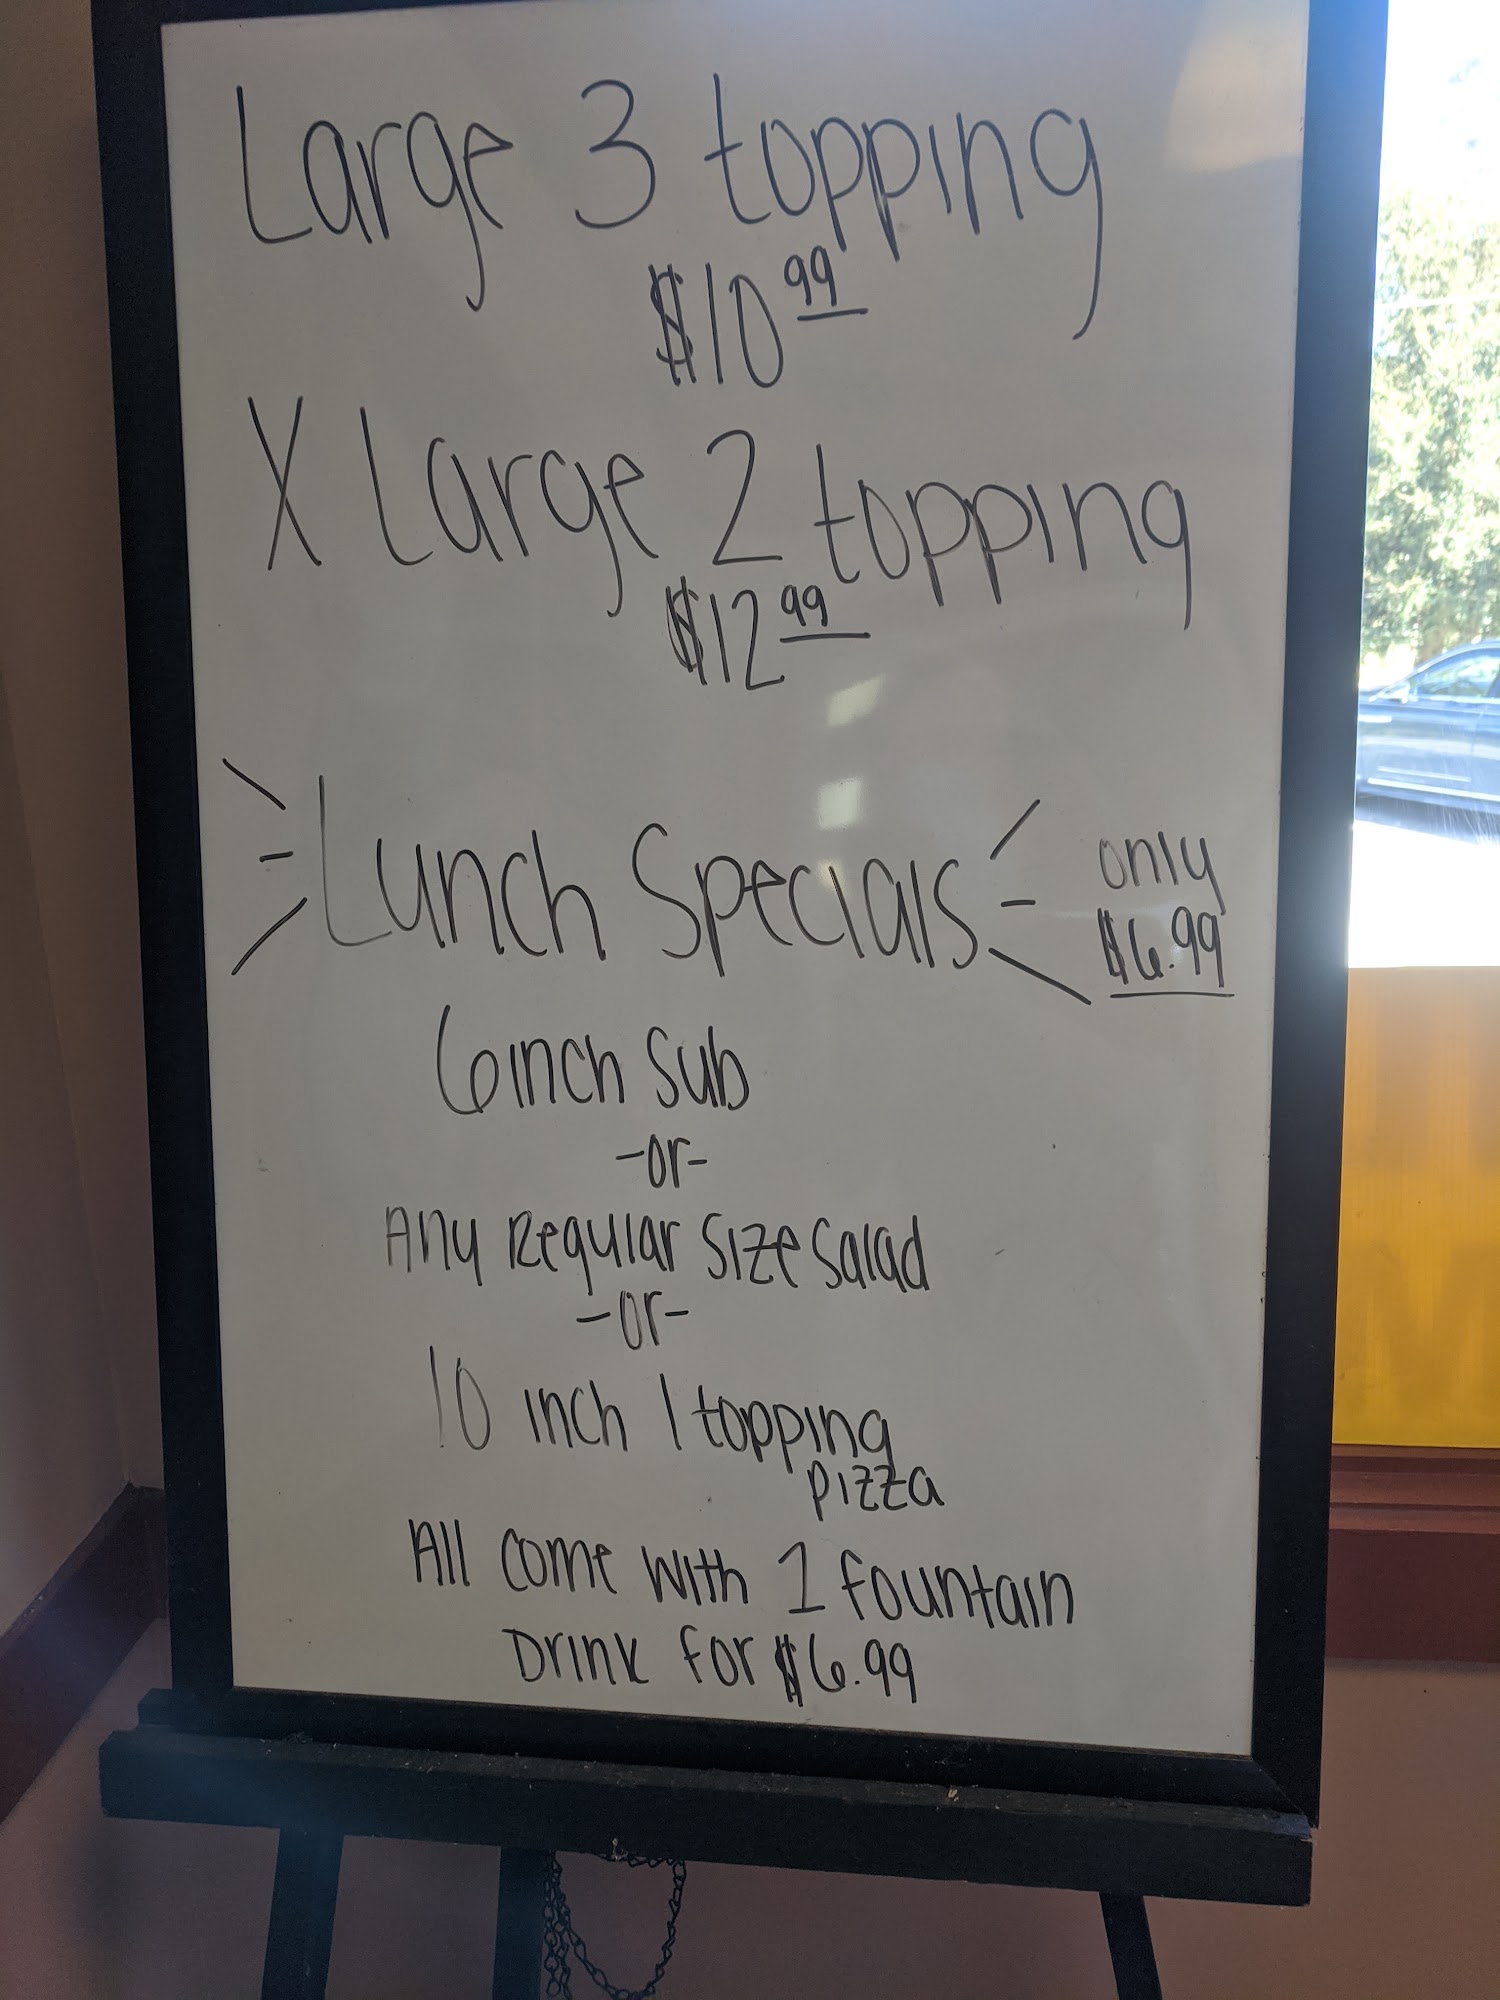 Large 3 topping
$10 99
X Large 2 topping
$12 99
Lunch Specials only
$6.99
6 inch Sub
-or-
Any Regular Size Salad
-or-
10 inch 1 topping
pizza
All come with 1 fountain
Drink for $6.99